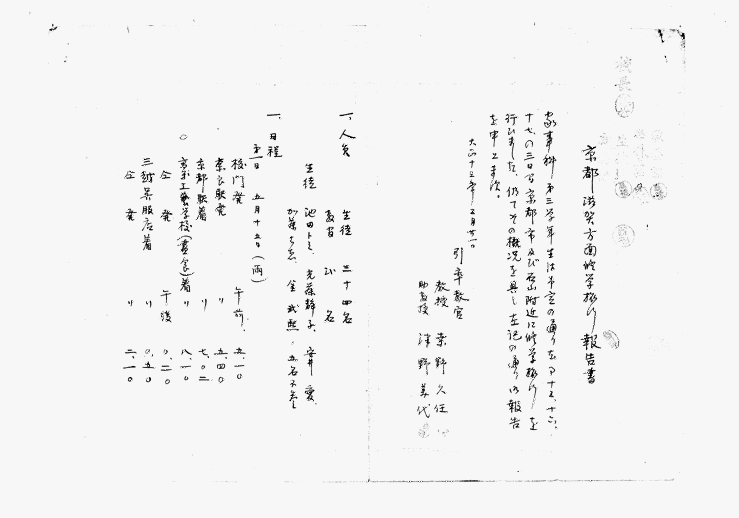 京都滋賀方面修学旅行報告書
家事科第三学年生徒予定の通り去る十五、十六、
十七の三日間京都市及び石山附近に修学旅行を
行ひました、仍てその概況を具し左記の通り御報告
を申上ます。
大正十三年五月廿一日
引率教官
教授
助教授 津野美代
一、人員
生徒 三十四名
教官 弐名
生徒 池田トミ、 静子、安井愛、
五名不参
一、日程
第一日 五月十五日(雨)
校門発 午前 五、一〇
奈良駅発 〃 五、四〇
京都駅着 〃 七、〇二
京都工藝学校(昼食)着 〃 八、一〇
仝 発 午後 〇、二〇
三越呉服店着 〃 〇、五〇
仝 発 〃 二、一〇